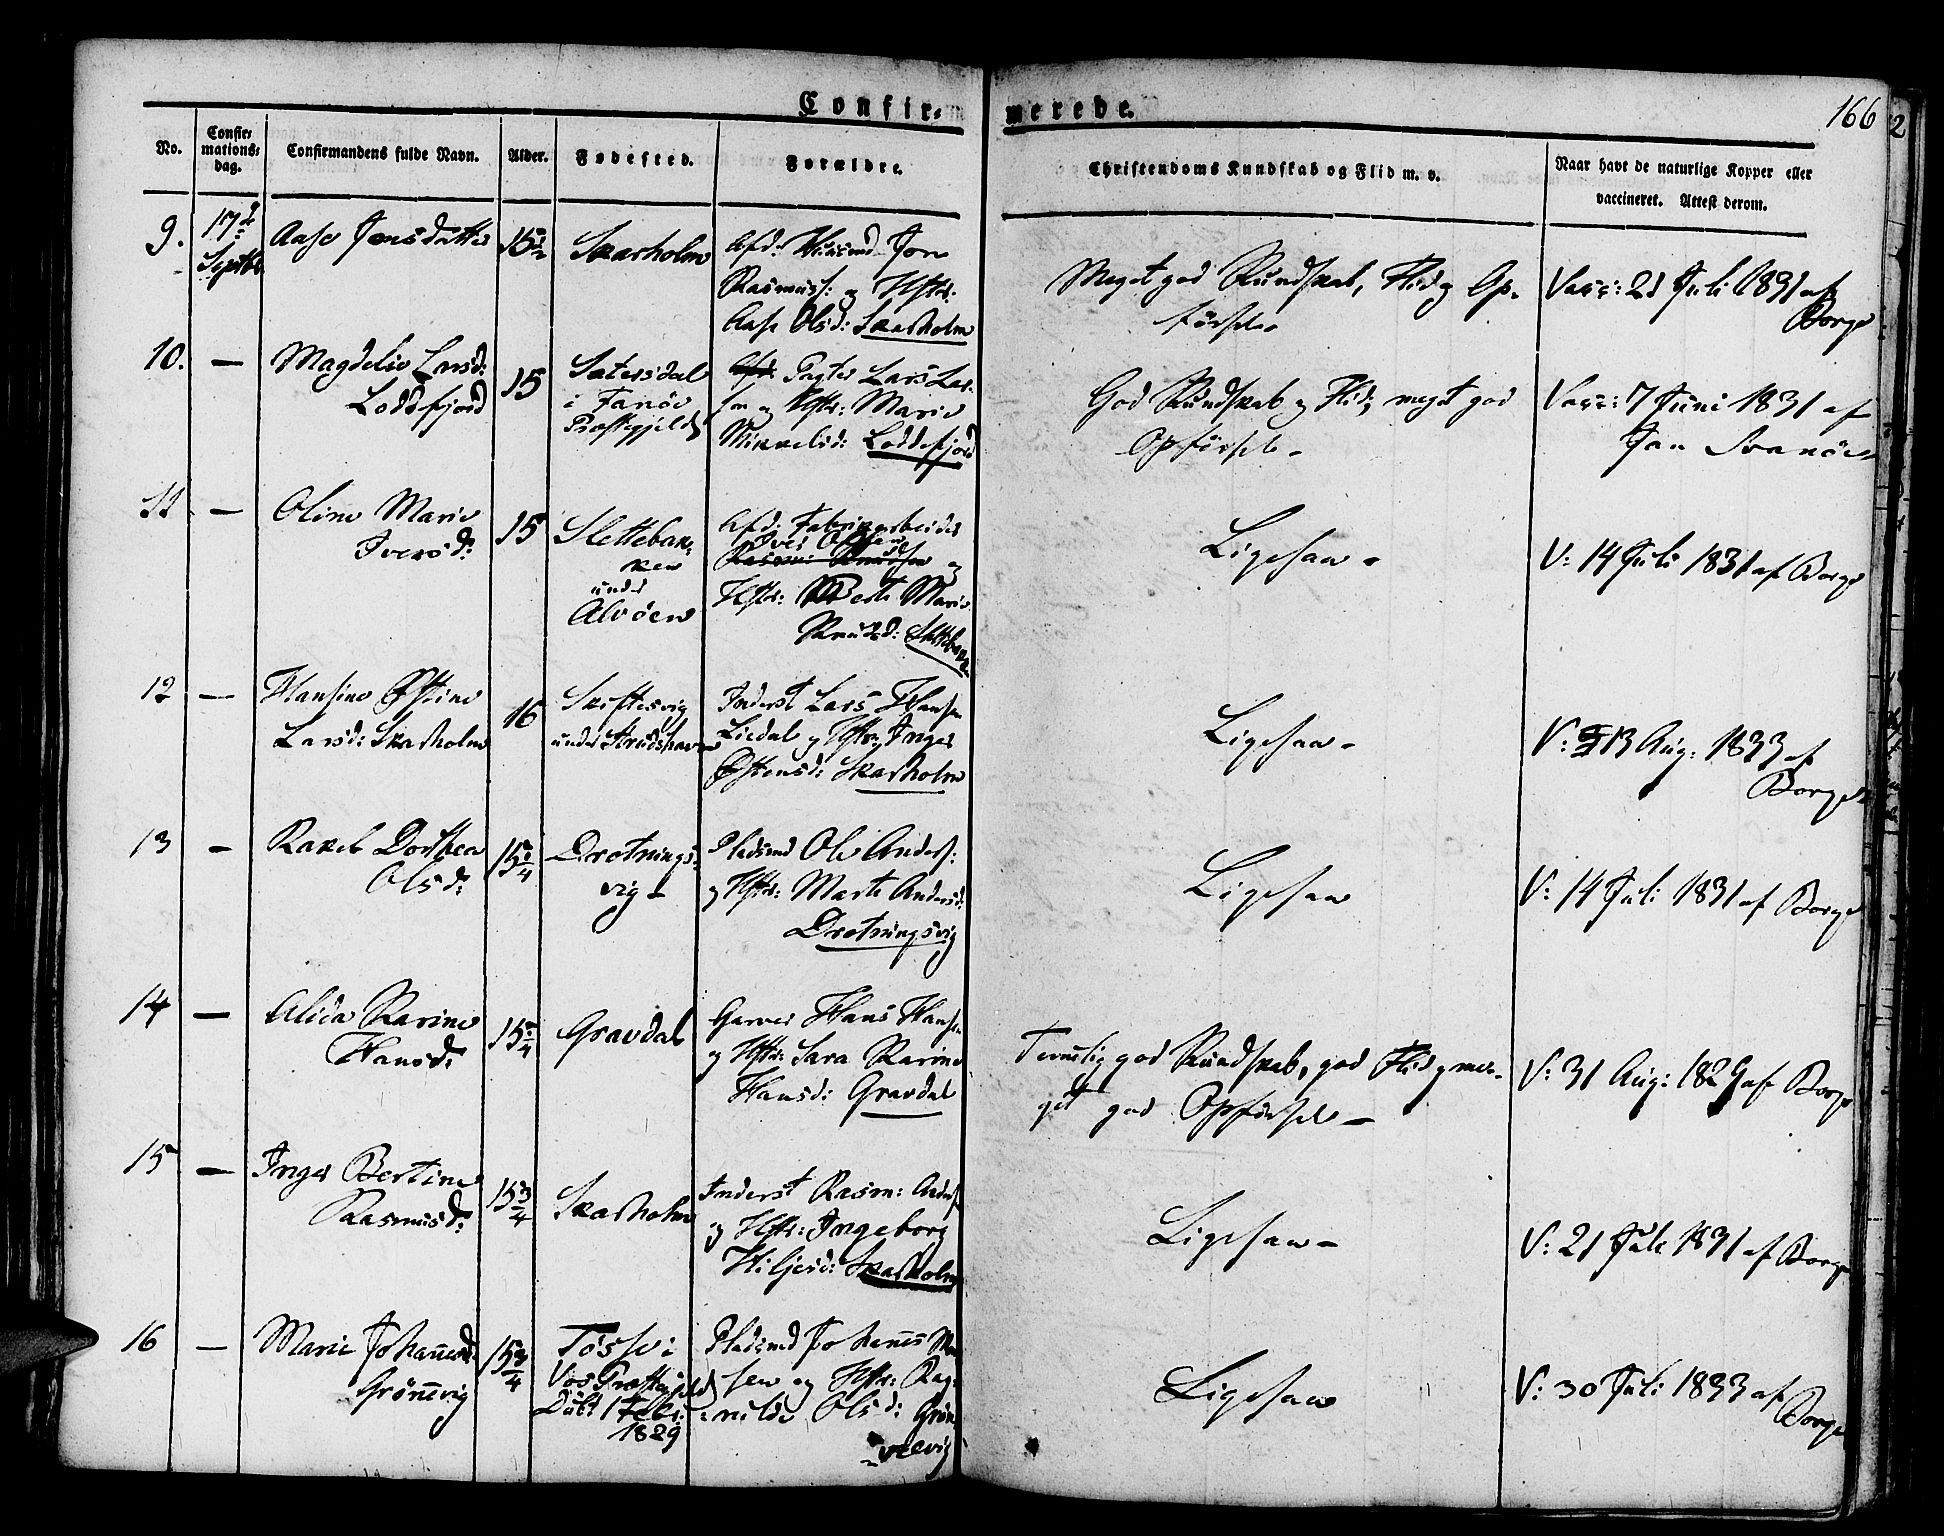 Confir- merede.
166
2
No.
Confir-
mations-
dag.
Confirmandens fulde Navn.
Alder.
Fødested.
Forældre.
Christendoms Kundskab og Flid m. v.
Naar havt de naturlige Kopper eller
vaccineret. Attest derom.
9.
17de
Septbr.
Aase Jonsdatter
15½
Skarholm
Afd: Huusmd Jon
Rasmuss: og Hstr:
Aase Olsd: Skarholm
Meget god Kundskab, Flid og Op-
førsel.
Vacc: 21 Juli 1831 af
Borge
10.
—
Magdeli Larsd:
Loddefjord
15
Sætersdal
i Fanöe
Præstegjeld
Afd: Pagter Lars Lar-
sen og Hstr: Marie
Mikkelsd: Loddefjord
God Kundskab og Flid, meget god
Opførsel.
Vacc: 7 Juni 1831 af
Jan Svanöe
11
—
Oline Marie
Iversd:
15
Slettebak-
ken
under
Alvöen
Afd: Fabrikarbeider
Iver Olsen
Rasmus Knudsen og
Hstr: Berte Marie
Knudsd: Slettebakk
Ligesaa.
V: 14 Juli 1831 af Borge
12
—
Hansine Østine
Larsd: Skarholm
16
Skiftesvig
under Strudshavn
Inderst Lars Hansen
Liedal og Hstr: Inger
Østensd: Skarholm
Ligesaa-
V: 13 Aug: 1833 af
Borge
13
—
Rakel Dorthea
Olsd:
15¾
Drotnings-
vig-
Pladsmd Ole Anders:
og Hstr: Marte Andersd:
Drotningsvig
Ligesaa
V: 14 Juli 1831 af Borge
14
—
Alida Karine
Hansd:
15¾
Gravdal
Garver Hans Hansen
og Hstr: Sara Karine
Hansd: Gravdal
Temmelig god Kundskab, god Flid og me-
get god Opførsel—
V: 31 Aug: 1829 af Borge
15
—
Inger Bertine
Rasmusd:
15¾
Skarholm
Inderst Rasm: Anders
og Hstr: Ingeborg
Hiljesd: Skarholm
Ligesaa-
V: 21 Juli 1831 af Borge
16
—
Marie Johannesd:
Grönnevig
15¾
Tösse i
Vos Præstegjeld
Döbt 1 Febr:
1829
Pladsmd Johannes Mon
sen og Hstr: Rag-
nilde Olsd: Grön-
nevig
Ligesaa
V: 30 Juli 1833 af
Borge